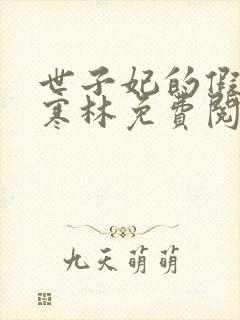 世子妃的假
寒林免費閱
九天萌萌